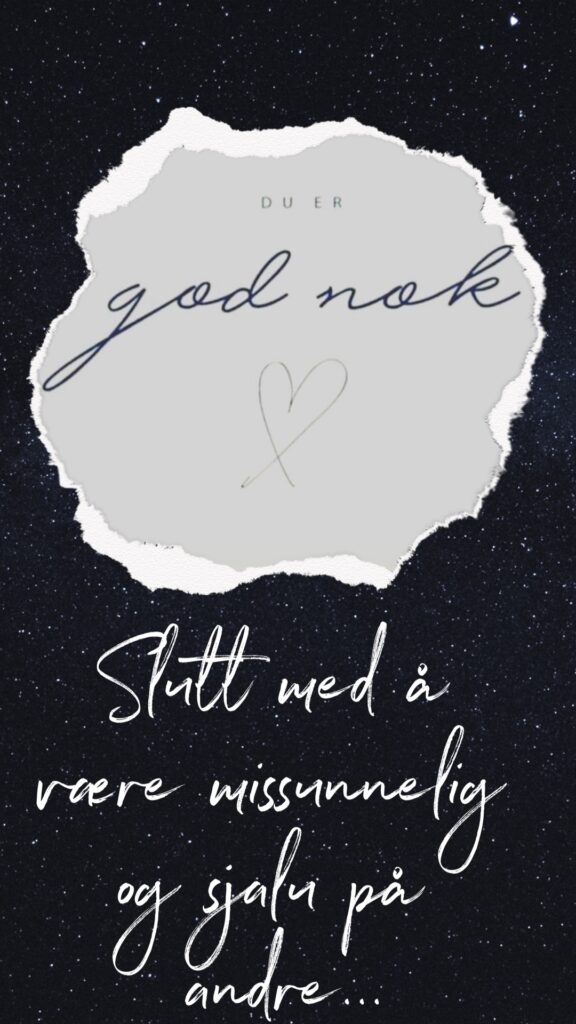 DU ER
god nok
Slutt med å
være missunnelig
og sjalu på
andre...